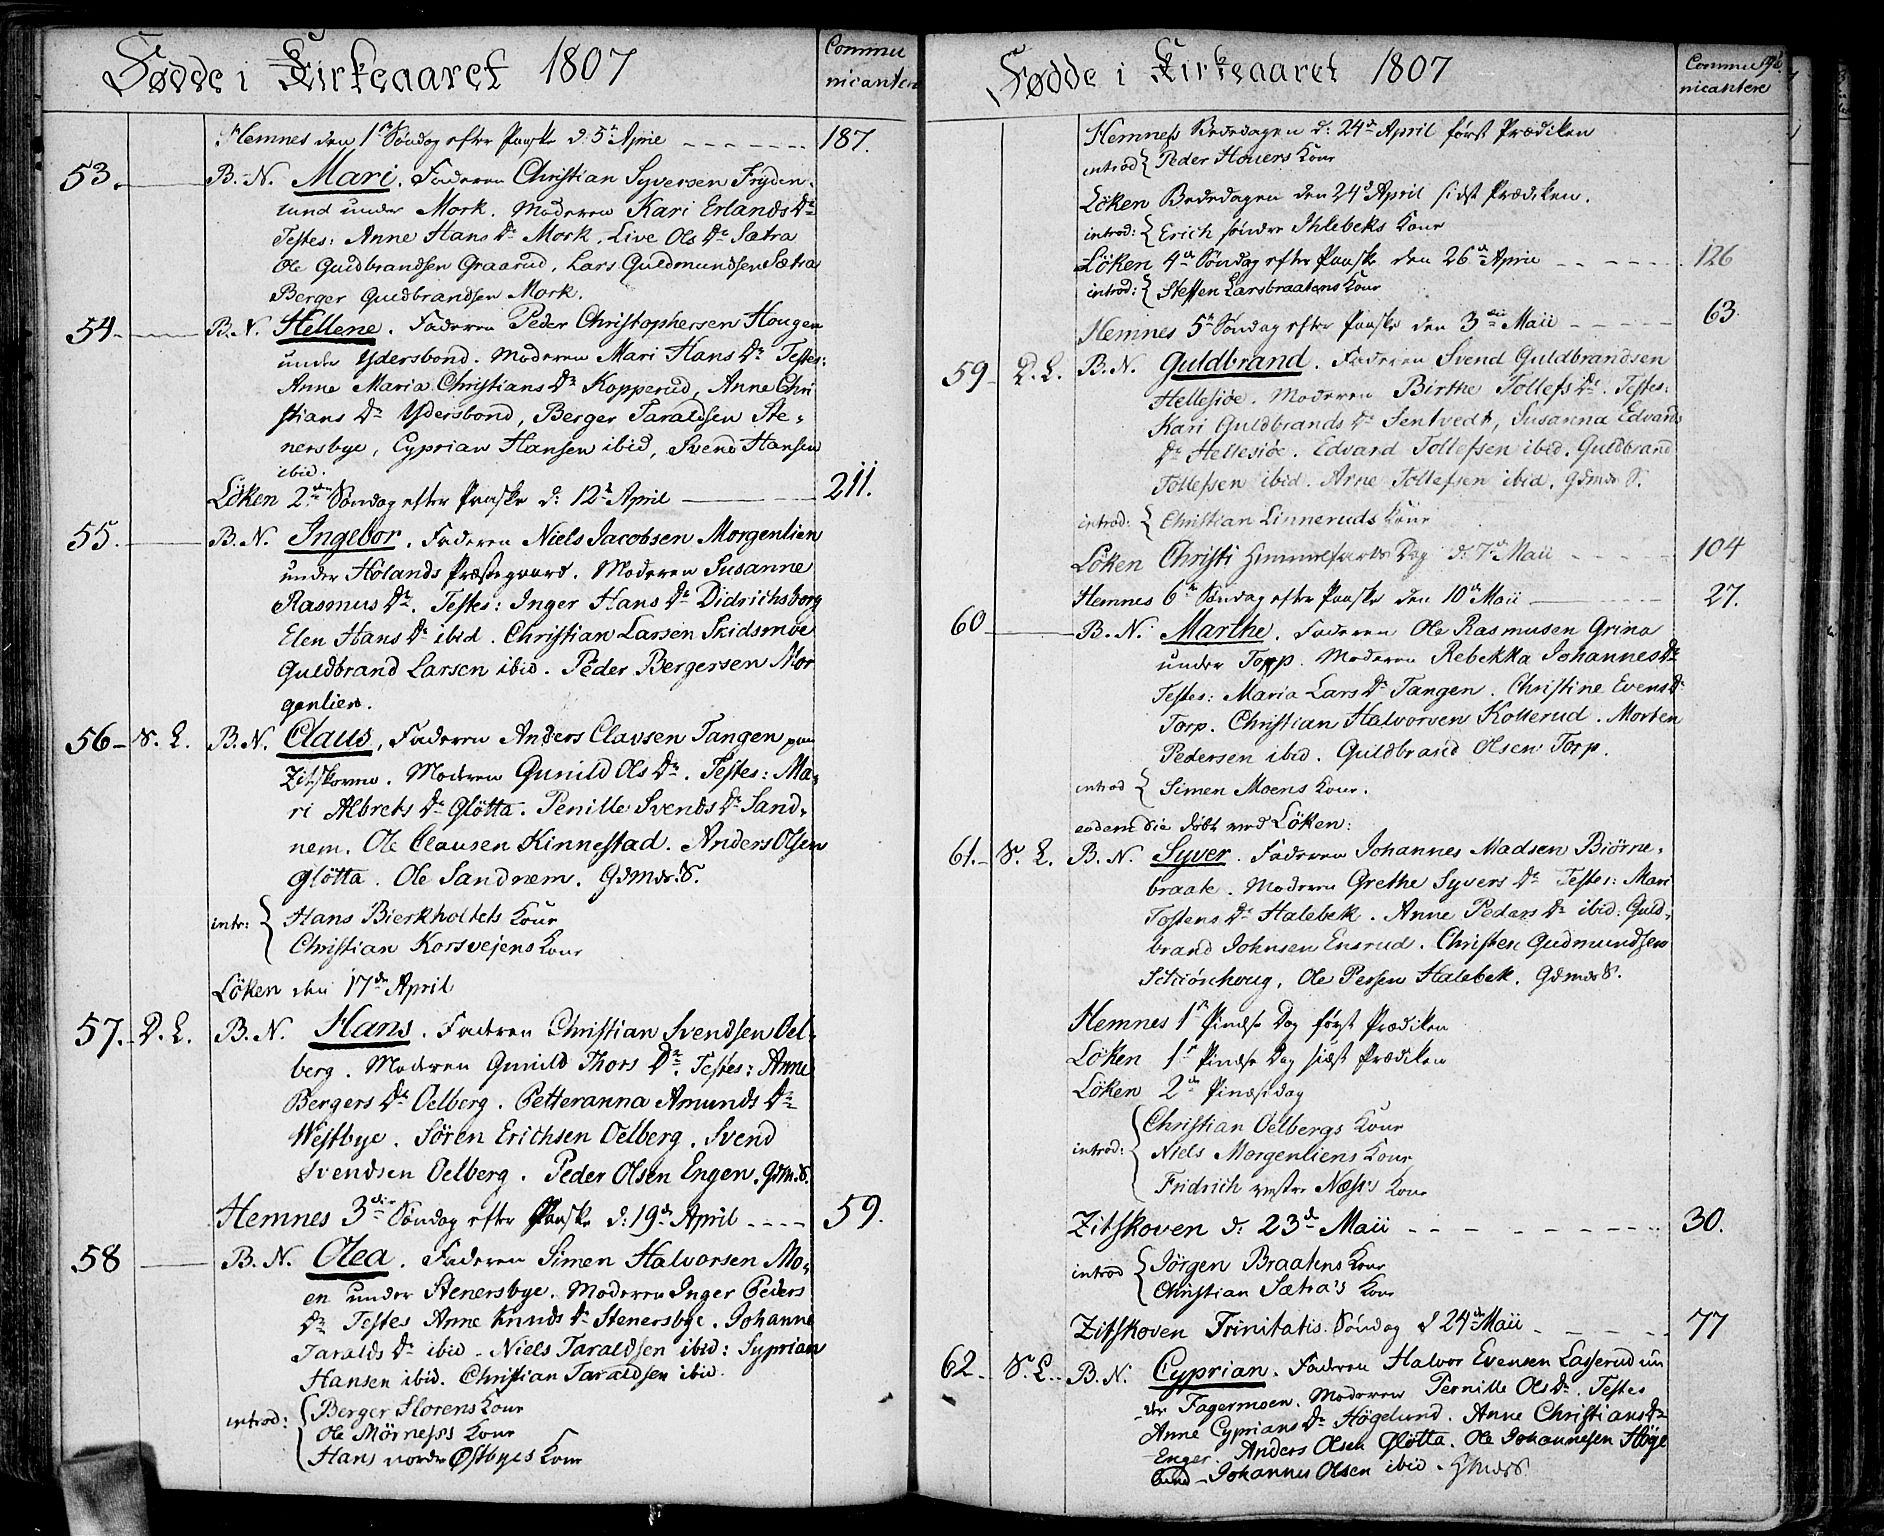 Fødde i Kirkeaaret 1807
Commu
nicantere
Hemnes den 1ste Søndag efter Paaske d: 5te April 187.
53. B. N. Mari. Faderen Christian Syversen Fryden-
lund under Mork. Moderen Kari Erlands Dr
Testes: Anne Hans Dr Mork, Live Ols Dr Sætra
Ole Guldbrandsen Graarud, Lars Guldmundsen Sætra
Berger Guldbrandsen Mork.
54. B. N. Hellene. Faderen Peder Christophersen Hougen
under Ydersbond. Moderen Mari Hans Dr Testes:
Anne Maria Christians Dr Kopperud, Anne Chri
stians Dr Ydersbond, Berger Taraldsen Ste-
nersbye, Cyprian Hansen ibid, Svend Hansen
ibid.
Löken 2den Søndag efter Paaske d: 12te April 211.
55. B. N. Ingebor. Faderen Niels Jacobsen Morgenlien
under Hølands Præstegaard. Moderen Susanne
Rasmus Dr. Testes: Inger Hans Dr Didrichsborg
Elen Hans Dr ibid. Christian Larsen Skidsmoe
Guldbrand Larsen ibid. Peder Bergersen Mor
genlien.
56 S. L. B. N. Claus, Faderen Anders Clausen Tangen paa
Zitskoven. Moderen Gunild Ols Dr. Testes: Ma-
ri Albrets Dr Glötta. Penille Svends Dr Sand-
nem. Ole Clausen Kinnestad. Anders Olsen
Glötta. Ole Sandnem. Gdmds. S.
intr: { Hans Bierkholtets Kone
Christian Korsvejens Kone
Löken den 17de April
57. D. L. B. N. Hans. Faderen Christian Svendsen Oel-
berg. Moderen Gunild Thors Dr. Testes: Anne
Bergers Dr Oelberg. Petteranna Amunds Dr
Westbye. Sören Erichsen Oelberg. Svend
Svendsen Oelberg. Peder Olsen Engen. Gdm. S.
Hemnes 3die Søndag efter Paaske d: 19de April 59.
58 B. N. Olea. Faderen Simen Halvorsen Mo-
en under Stenersbye. Moderen Inger Peders
Dr Testes Anne Knuds Dr Stenersbye. Johanne
Taralds Dr ibid - Niels Taraldsen ibid: Syprian
Hansen ibid. Christian Taraldsen ibid.
introd: { Berger Slorens Kone
Ole Mörness's Kone
Hans nordre Østbyes Kone
Fødde i Kirkeaaret 1807
Commu
nicantere
Hemness Bededagen d: 24de April først Prædiken
introd { Peder Houers Kone
Löken Bededagen den 24de April sidst Prædiken.
introd: { Erich søndre Ihlebeks Kone
Löken 4de Søndag efter Paaske den 26de April 126
introd: { Steffen Larsbraatens Kone
Hemnes 5te Søndag efter Paaske den 3die Maii 63.
59 D. L. B. N. Guldbrand. Faderen Svend Guldbrandsen
Hellesiøe. Moderen Birthe Tollefs Dr. Testes:
Kari Guldbrands Dr Sentvedt, Susanna Edvards
Dr Hellesiøe. Edvard Tollefsen ibid. Guldbrand
Tollefsen ibid. Arne Tollefsen ibid. Gdmds S.
introd: { Christian Linneruds Kone
Löken Christi Himmelfarts Dag d: 7de Maii 104
Hemnes 6te Søndag efter Paaske den 10de Maii 27.
60 B. N. Marthe. Faderen Ole Rasmusen Grina
under Torp. Moderen Rebekka Johannes Dr
Testes: Maria Lars Dr Tangen. Christine Evens Dr
Torp. Christian Halvorven Kollerud. Morten
Pedersen ibid. Guldbrand Olsen Torp.
introd { Simen Moens Kone.
eodem die døbt ved Löken:
61. S. L. B. N. Syver. Faderen Johannes Madsen Biørne-
braate. Moderen Grethe Syvers Dr Testes: Mari
Tostens Dr Halebek. Anne Peders Dr ibid: Guld-
brand Johnsen Ensrud. Christen Gudmundsen
Schiöshoug, Ole Persen Halebek. Gdmds S.
Hemnes 1ste Pindse Dag først Prædiken
Löken 1ste Pindse Dag sidst Prædiken
Löken 2den Pindsedag
introd: { Christian Oelbergs Kone
Niels Morgenliens Kone
Fridrich vestre Næss's Kone
Zitskoven d: 23de Maii 30.
introd { Jörgen Braatens Kone
Christian Sætra's Kone
Zitskoven Trinitatis Søndag d 24de Maii 77
62 S. L. B. N. Cyprian. Faderen Halvor Evensen Lasserud un
der Fagermoen. Moderen Pernille Ols Dr. Testes
Anne Cyprians Dr Högelund. Anne Christians Dr
Enger. Anders Olsen Glötta. Ole Johannesen Höge
lund - Johannes Olsen ibid. Gdmds S.